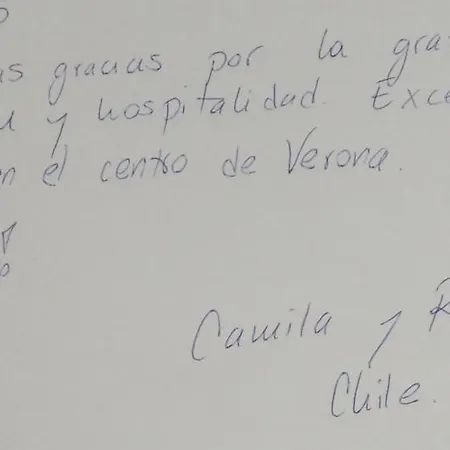 gracias por la gra
y hospitalidad. Exce
n el centro de Verona.
Camila y R
Chile.